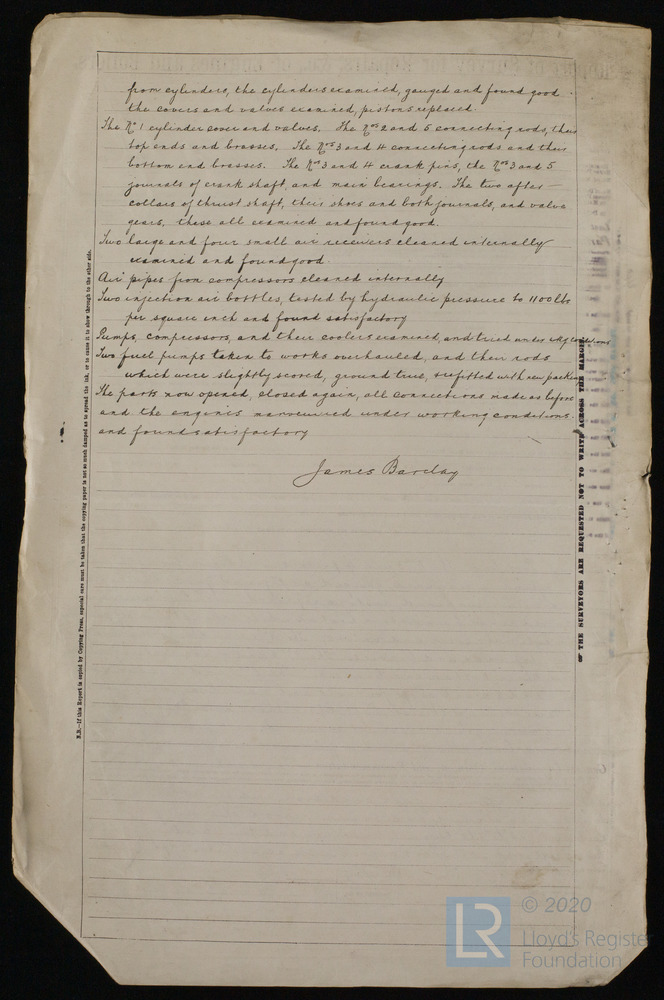 from cylinders, the cylinders examined, gauged and found good.
the covers and valves examined, pistons replaced.
The No 1 cylinder cover and valves. The Nos 2 and 5 connecting rods, their
top ends and brasses. The Nos 3 and 4 connecting rods and their
bottom end brasses. The Nos 3 and 4 crank pins, the Nos 3 and 5
journals of crank shaft, and main bearings. The two after
collars of thrust shaft, their shoes and both journals, and valve
gears, these all examined and found good.
Two large and four small air receivers cleaned internally
examined and found good.
Air pipes from compressors cleaned internally
Two injection air bottles, tested by hydraulic pressure to 1100 lbs
per square inch and found satisfactory
Pumps, compressors, and their coolers examined, and tried under wkg conditions
Two fuel pumps taken to works overhauled, and their rods
which were slightly scored, ground true, refitted with new packing
The parts now opened, closed again, all connections made as before
and the engines manoeuvred under working conditions.
and found satisfactory
James Barclay
N.B.—If this Report is copied by Copying Press, especial care must be taken that the copying paper is not so much damped as to spread the ink, or to cause it to show through to the other side.
THE SURVEYORS ARE REQUESTED NOT TO WRITE ACROSS THE MARGIN
LR
© 2020
Lloyd's Register
Foundation